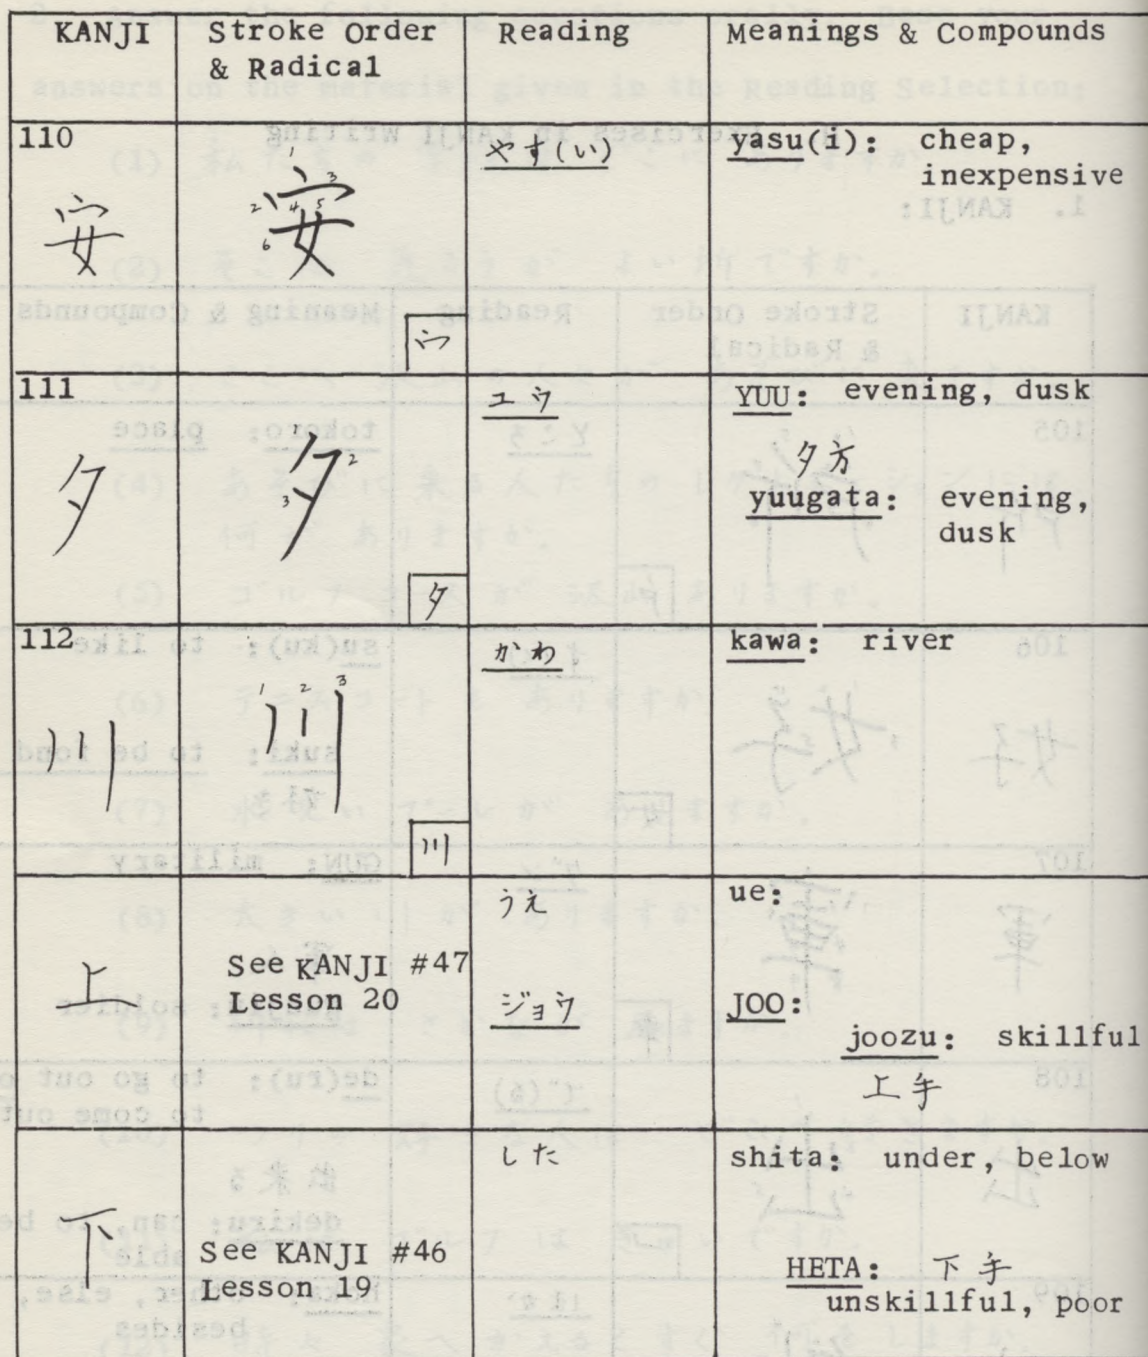 KANJI
Stroke Order & Radical
Reading
Meanings & Compounds
110
安
1 2 3 4 5 6
安
宀
やす(い)
yasu(i): cheap,
inexpensive
111
夕
1 2 3
夕
夕
ユウ
YUU: evening, dusk
夕方
yuugata: evening,
dusk
112
川
1 2 3
川
川
かわ
kawa: river
上
See KANJI #47
Lesson 20
うえ
ジョウ
ue:
JOO:
joozu: skillful
上手
下
See KANJI #46
Lesson 19
した
shita: under, below
HETA: 下手
unskillful, poor